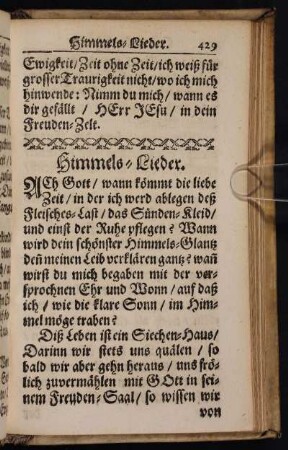 Himmels-Lieder. 429
Ewigkeit/Zeit ohne Zeit/ich weiß für
grosser Traurigkeit nicht/wo ich mich
hinwende: Nimm du mich/wann es
dir gefällt / HErr JEsu / in dein
Freuden-Zelt.
Himmels-Lieder.
ACh Gott/wann kömmt die liebe
Zeit/in der ich werd ablegen deß
Fleisches-Last/das Sünden-Kleid/
und einst der Ruhe pflegen? Wann
wird dein schönster Himmels-Glantz
deñ meinen Leib verklären gantz? wañ
wirst du mich begaben mit der ver-
sprochnen Ehr und Wonn/auf daß
ich/wie die klare Sonn/im Him-
mel möge traben?
Diß Leben ist ein Siechen-Haus/
Darinn wir stets uns quälen / so
bald wir aber gehn heraus/uns frö-
lich zuvermählen mit GOtt in sei-
nem Freuden-Saal/so wissen wir
von